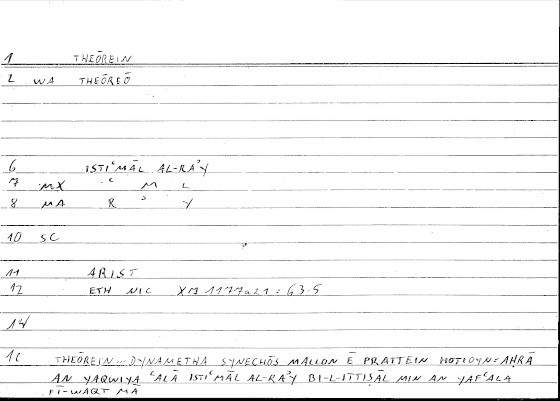 1 THEŌREIN
2 WA THEŌREŌ
6 ISTIʿMĀL AL-RAʾY
7 MX ʿ M L
8 MA R ʾ Y
10 SC
11 ARIST
12 ETH NIC X 7 1177a21 = 563.5
14
16 THEŌREIN... DYNAMETHA SYNECHŌS MALLON Ē PRATTEIN HOTIOYN = AḤRĀ
AN YAQWIYA ʿALĀ ISTIʿMĀL AL-RAʾY BI-L-ITTIṢĀL MIN AN YAFʿALA
FĪ-WAQT MĀ